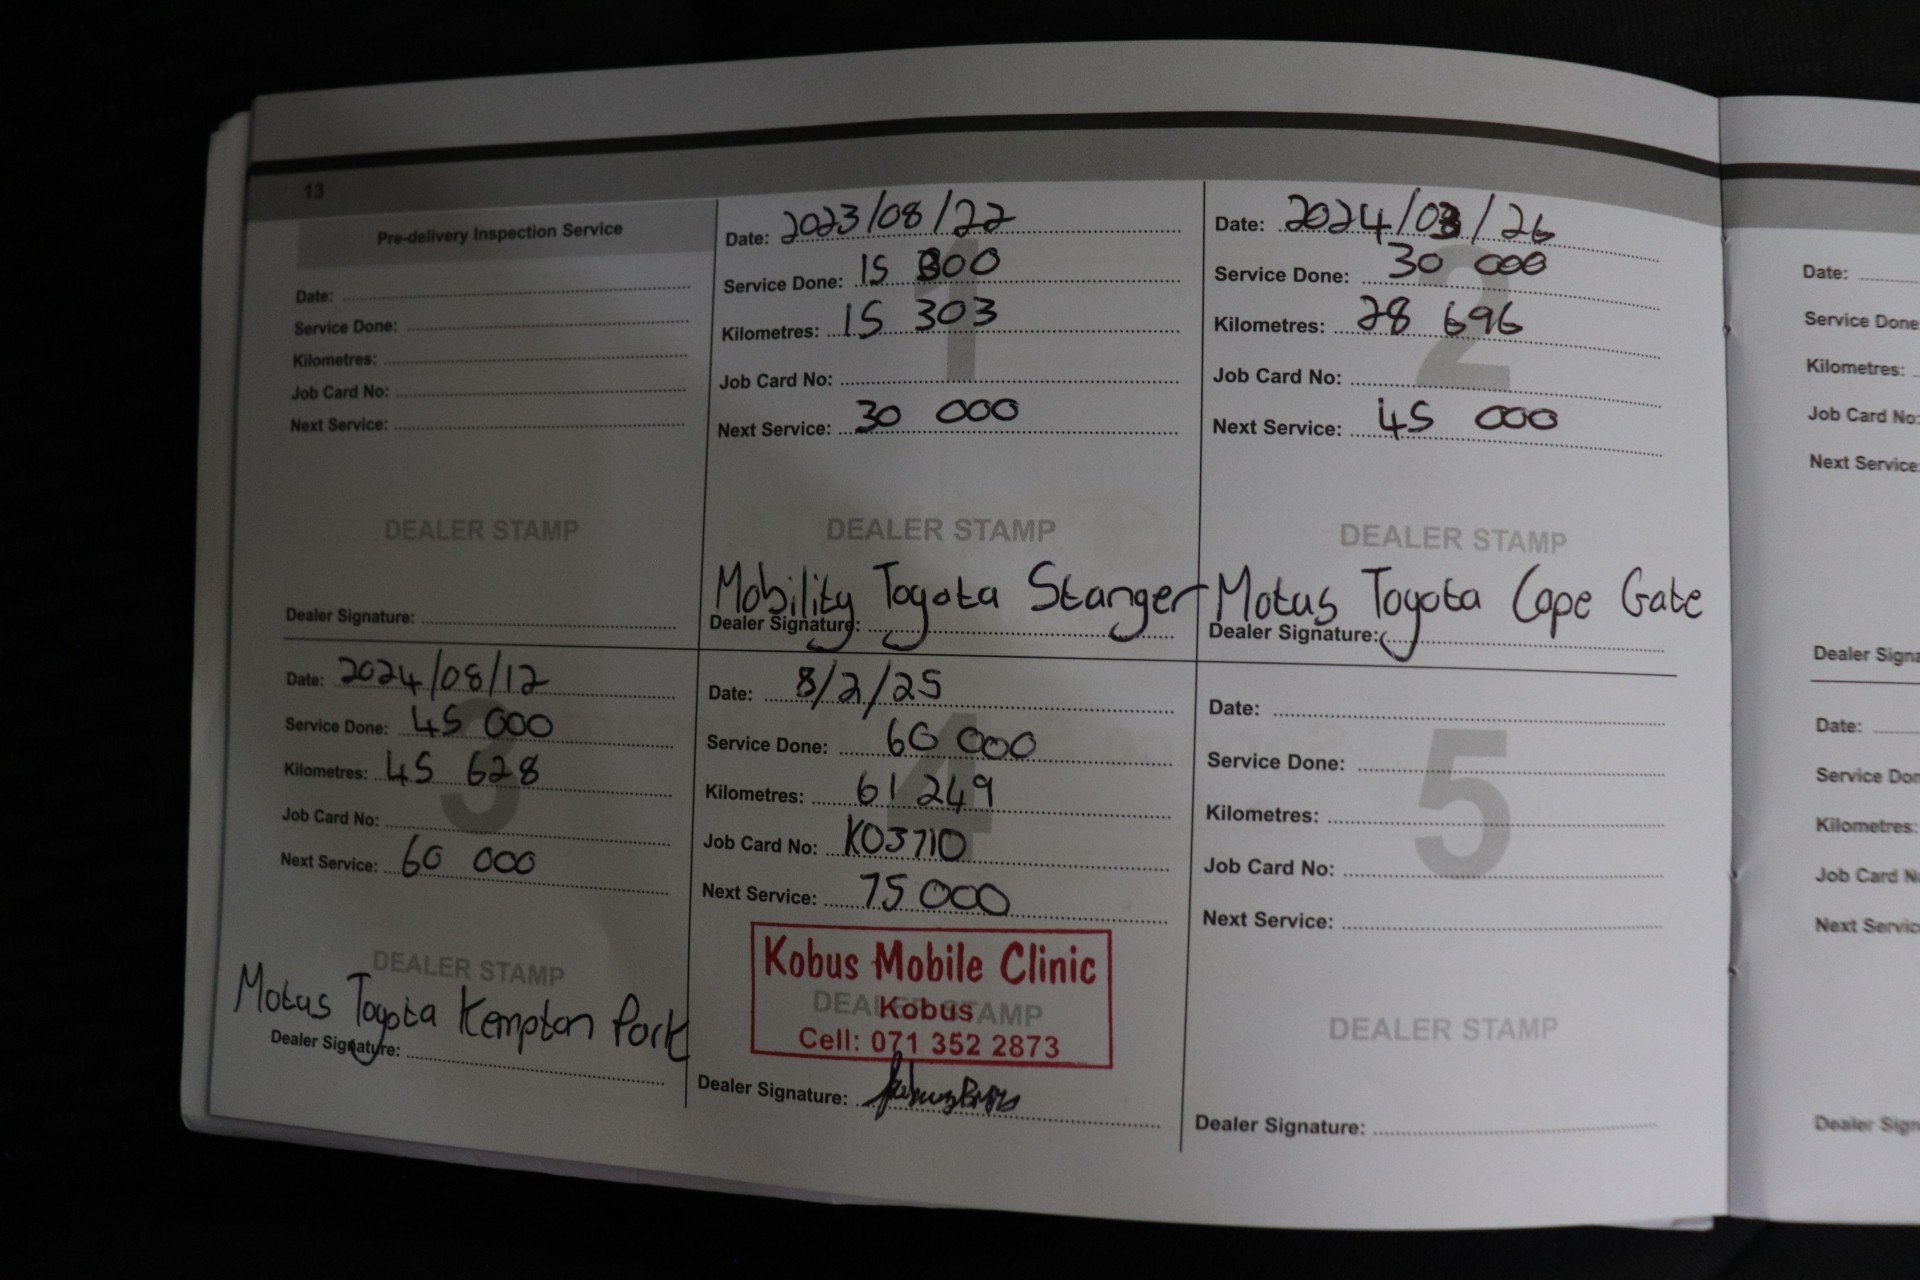 13
Pre-delivery Inspection Service
Date:
Service Done:
Kilometres:
Job Card No:
Next Service:
DEALER STAMP
Dealer Signature:
1
Date: 2023/08/22
Service Done: 15 000
Kilometres: 15 303
Job Card No:
Next Service: 30 000
DEALER STAMP
Mobility Toyota Stanger
Dealer Signature:
2
Date: 2024/03/26
Service Done: 30 000
Kilometres: 28 696
Job Card No:
Next Service: 45 000
DEALER STAMP
Motus Toyota Cape Gate
Dealer Signature:
3
Date: 2024/08/12
Service Done: 45 000
Kilometres: 45 628
Job Card No:
Next Service: 60 000
DEALER STAMP
Motus Toyota Kempton Park
Dealer Signature:
4
Date: 8/2/25
Service Done: 60 000
Kilometres: 61 249
Job Card No: K03710
Next Service: 75 000
DEALER STAMP
Kobus Mobile Clinic
Kobus
Cell: 071 352 2873
Dealer Signature:
5
Date:
Service Done:
Kilometres:
Job Card No:
Next Service:
DEALER STAMP
Dealer Signature:
Date:
Service Done
Kilometres:
Job Card No:
Next Service:
Dealer Signa
Date:
Service Don
Kilometres:
Job Card N
Next Servic
Dealer Sign